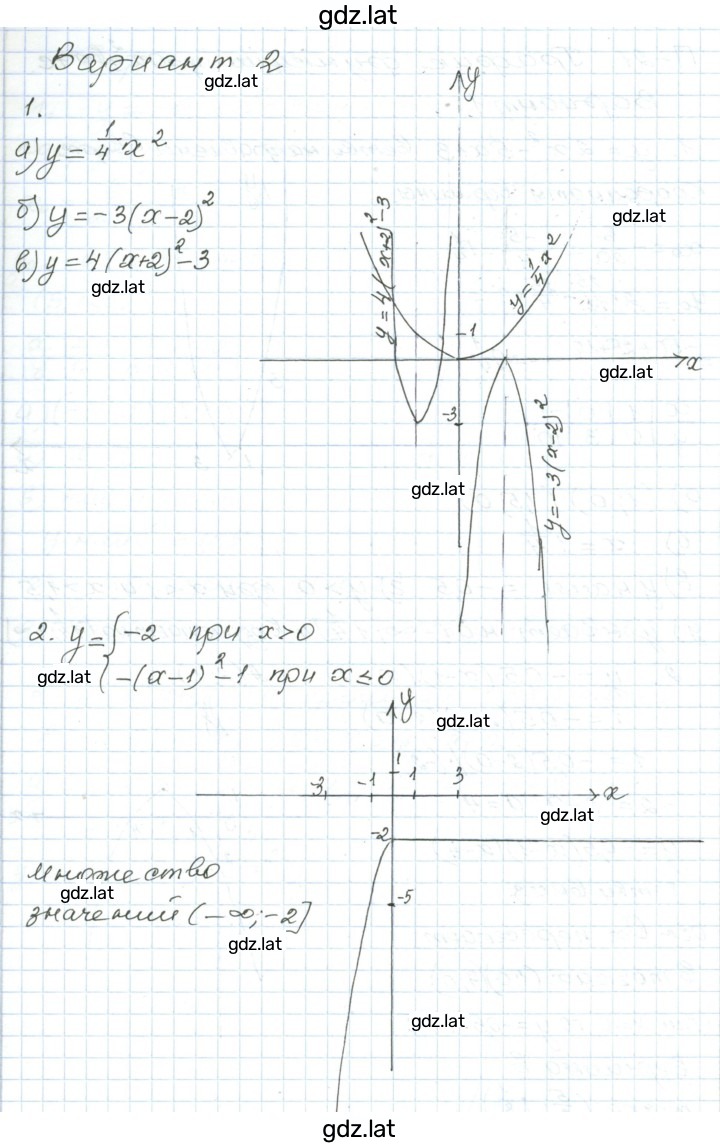 gdz.lat
Вариант 2
gdz.lat
1.
а) y = 1/4 x²
б) y = -3(x-2)²
в) y = 4(x+2)²-3
gdz.lat
y
gdz.lat
y = 4(x+2)²-3
y = 1/4 x²
1
x
gdz.lat
-3
gdz.lat
y = -3(x-2)²
2. y = { -2 при x>0
gdz.lat
-(x-1)²-1 при x≤0
y
gdz.lat
-3 -1 1 1 3
x
gdz.lat
-2
множество
gdz.lat
значений (-∞; -2]
gdz.lat
-5
gdz.lat
gdz.lat